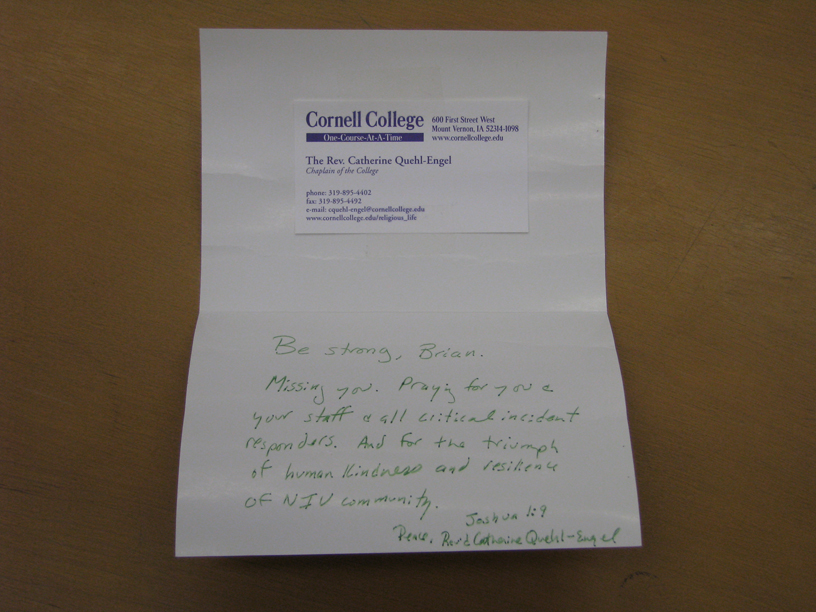 Cornell College
One-Course-At-A-Time
600 First Street West
Mount Vernon, IA 52314-1098
www.cornellcollege.edu
The Rev. Catherine Quehl-Engel
Chaplain of the College
phone: 319-895-4402
fax: 319-895-4492
e-mail: cquehl-engel@cornellcollege.edu
www.cornellcollege.edu/religious_life
Be strong, Brian.
Missing you. Praying for you &
your staff & all critical incident
responders. And for the triumph
of human kindness and resilience
of NIU community.
Joshua 1:9
Peace, Rev'd Catherine Quehl-Engel